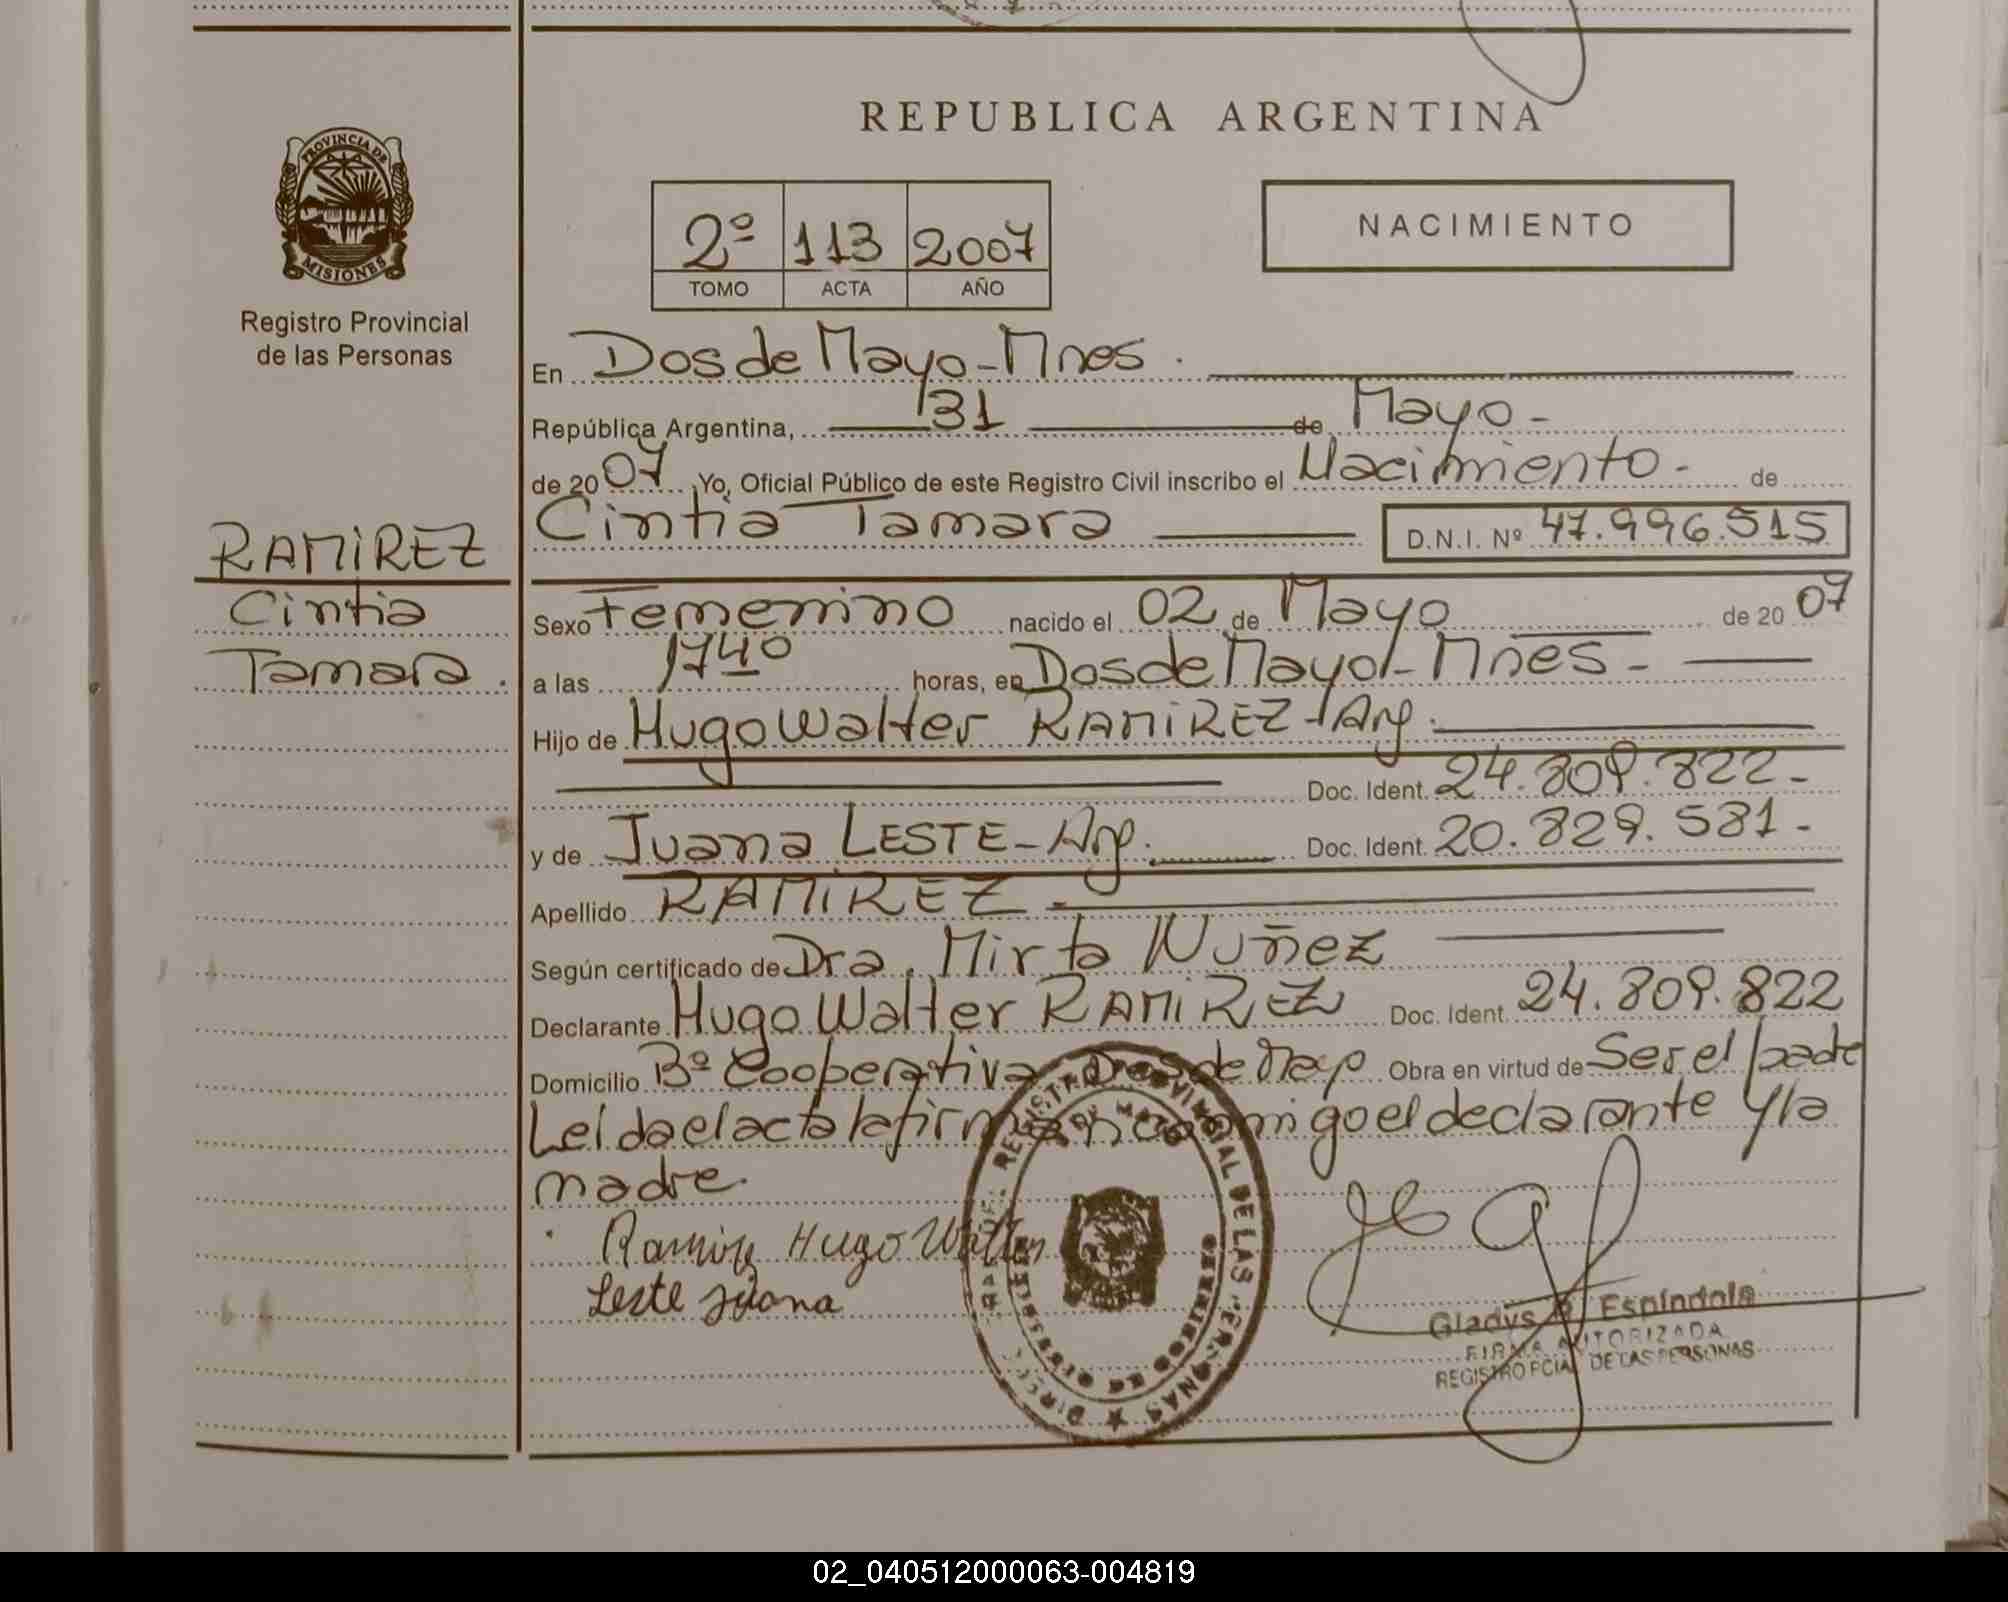 REPUBLICA ARGENTINA
PROVINCIA DE
MISIONES
Registro Provincial
de las Personas
2º 113 2007
TOMO ACTA AÑO
NACIMIENTO
En Dos de Mayo - Mnes.
República Argentina, 31 de Mayo -
de 2007 Yo, Oficial Público de este Registro Civil inscribo el Nacimiento - de
Cintia Tamara D.N.I. Nº 47.996.515
RAMIREZ
Cintia
Tamara.
Sexo Femenino nacido el 02 de Mayo de 2007
a las 1740 horas, en Dos de Mayo - Mnes -
Hijo de Hugo Walter RAMIREZ - Arg.
Doc. Ident. 24.809.822 -
y de Juana LESTE - Arg. Doc. Ident. 20.829.581 -
Apellido RAMIREZ -
Según certificado de Dra. Mirta Nuñez
Declarante Hugo Walter RAMIREZ Doc. Ident. 24.809.822
Domicilio Bº Cooperativa Dos de Mayo Obra en virtud de Ser el padre
Leída el acta la firman conmigo el declarante y la
madre.
Ramirez Hugo Walter
Leste Juana
REGISTRO PROVINCIAL DE LAS PERSONAS
Gladys Espíndola
FIRMA AUTORIZADA
REGISTRO PCIAL DE LAS PERSONAS
02_040512000063-004819